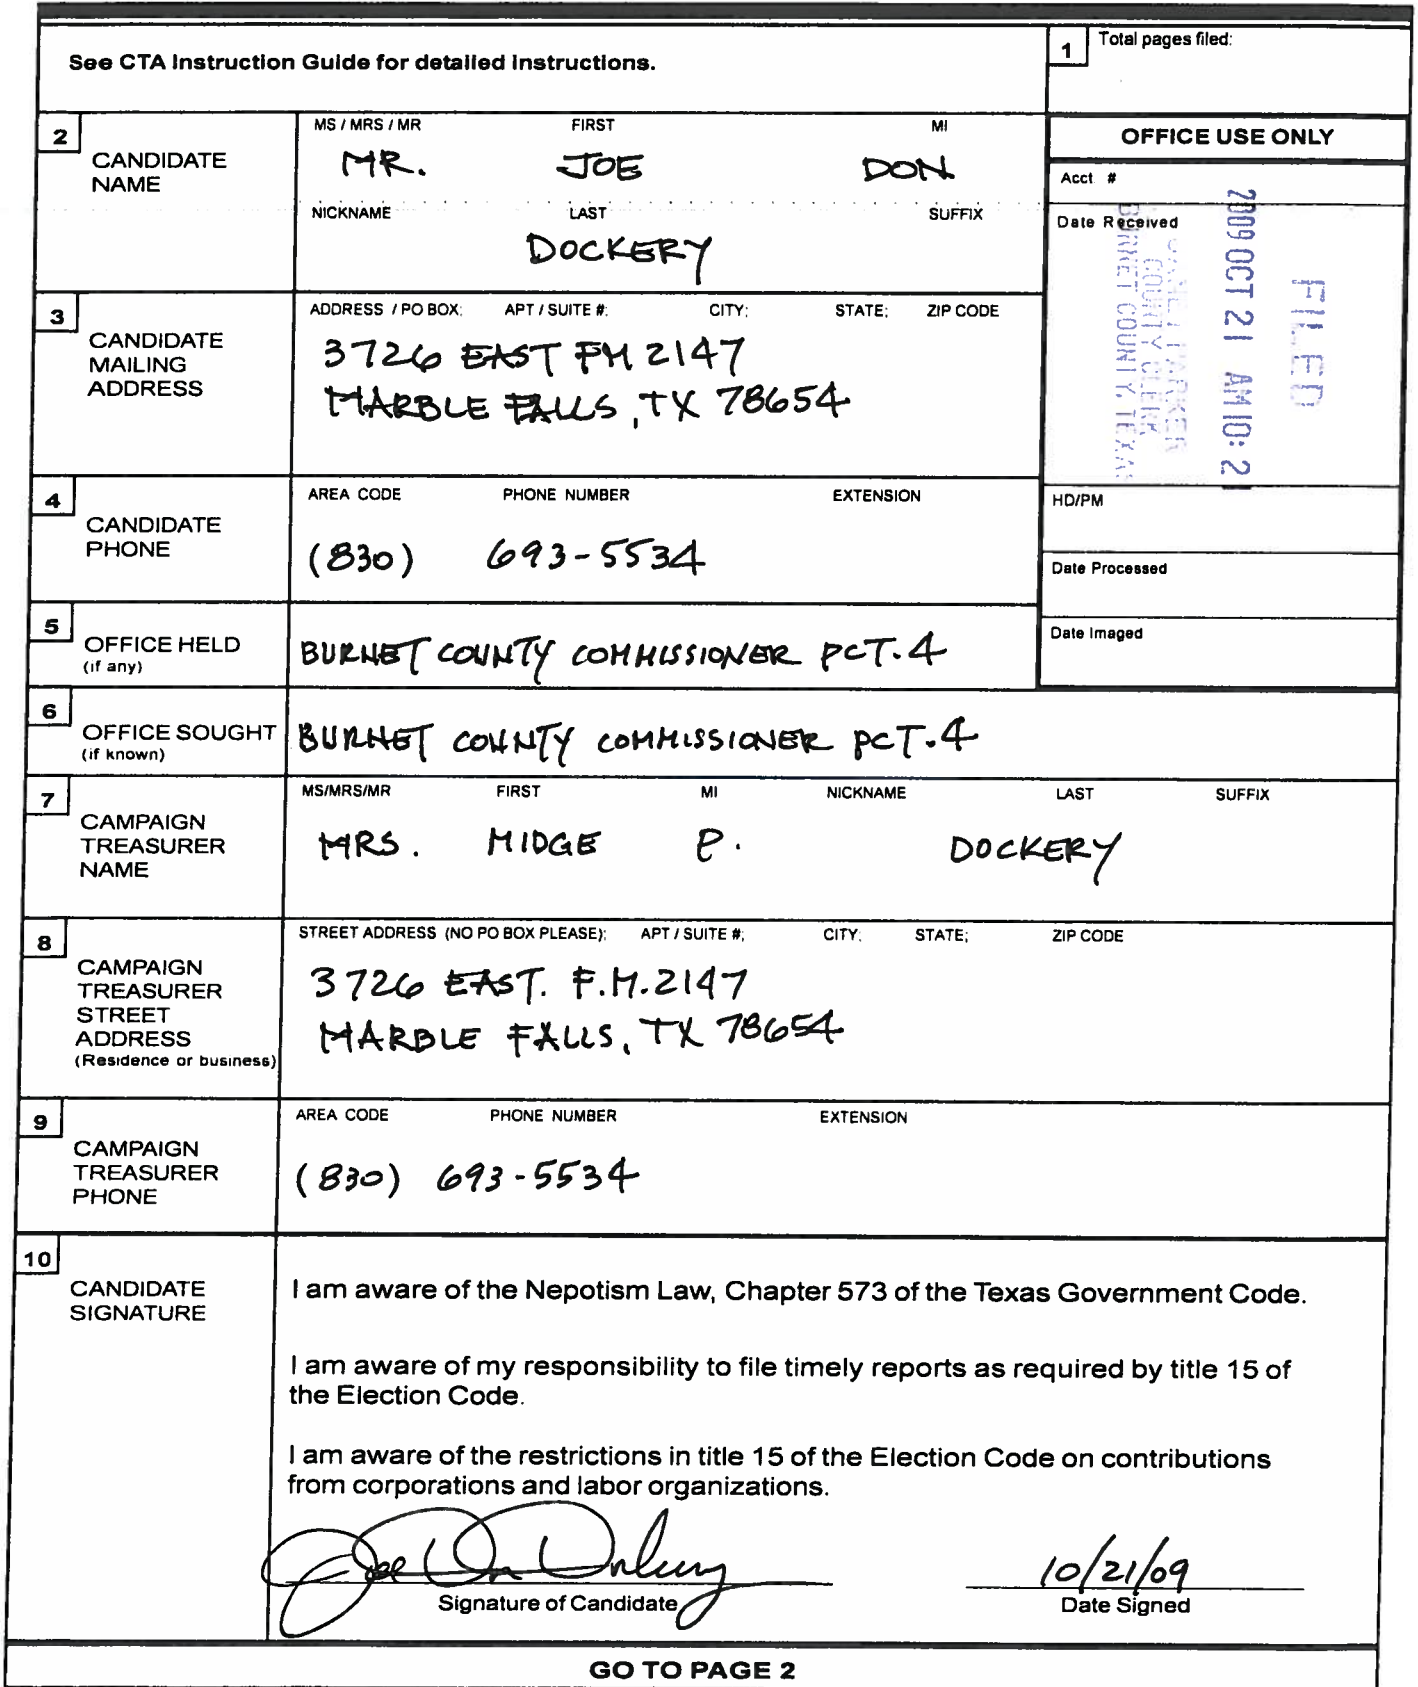 See CTA Instruction Guide for detailed instructions.
1 Total pages filed:
2 CANDIDATE NAME
MS / MRS / MR FIRST MI
MR. JOE DON
NICKNAME LAST SUFFIX
DOCKERY
OFFICE USE ONLY
Acct. #
Date Received
FILED
2009 OCT 21 AM 10: 2
COUNTY CLERK
BURNET COUNTY, TEXAS
HD/PM
Date Processed
Date Imaged
3 CANDIDATE MAILING ADDRESS
ADDRESS / PO BOX; APT / SUITE #; CITY; STATE; ZIP CODE
3726 EAST FM 2147
MARBLE FALLS, TX 78654
4 CANDIDATE PHONE
AREA CODE PHONE NUMBER EXTENSION
(830) 693-5534
5 OFFICE HELD (if any)
BURNET COUNTY COMMISSIONER PCT. 4
6 OFFICE SOUGHT (if known)
BURNET COUNTY COMMISSIONER PCT. 4
7 CAMPAIGN TREASURER NAME
MS/MRS/MR FIRST MI NICKNAME LAST SUFFIX
MRS. MIDGE P. DOCKERY
8 CAMPAIGN TREASURER STREET ADDRESS (Residence or business)
STREET ADDRESS (NO PO BOX PLEASE); APT / SUITE #; CITY; STATE; ZIP CODE
3726 EAST. F.M. 2147
MARBLE FALLS, TX 78654
9 CAMPAIGN TREASURER PHONE
AREA CODE PHONE NUMBER EXTENSION
(830) 693-5534
10 CANDIDATE SIGNATURE
I am aware of the Nepotism Law, Chapter 573 of the Texas Government Code.
I am aware of my responsibility to file timely reports as required by title 15 of
the Election Code.
I am aware of the restrictions in title 15 of the Election Code on contributions
from corporations and labor organizations.
Joe Don Dockery 10/21/09
Signature of Candidate Date Signed
GO TO PAGE 2